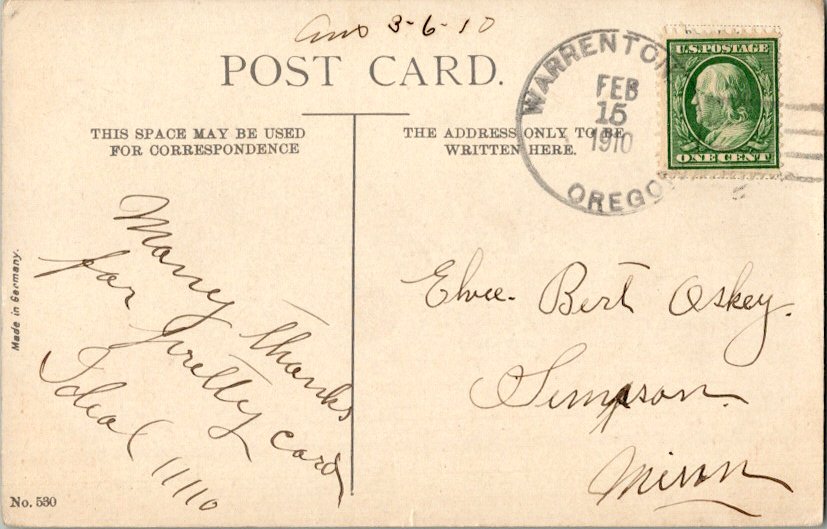 Ans 3-6-10
POST CARD.
THIS SPACE MAY BE USED
FOR CORRESPONDENCE
THE ADDRESS ONLY TO BE
WRITTEN HERE.
WARRENTON
FEB
15
1910
OREGON
U.S. POSTAGE
ONE CENT
Many thanks
for pretty card
Ideal 11110
Bert Oskey.
Simpson
Minn
Made in Germany.
No. 530